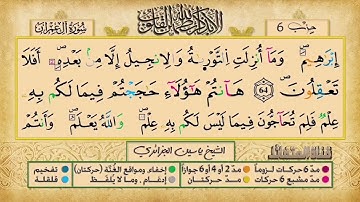 حزب 6
ألا بذكر الله تطمئن القلوب
سورة آل عمران
إِبْرَٰهِيمَ وَمَآ أُنزِلَتِ اِ۬لتَّوْر۪ىٰةُ وَالِانجِيلُ إِلَّا مِنۢ بَعْدِهِۦٓ أَفَلَا
تَعْقِلُونَۖ 64 هَآنتُمْ هَٰٓؤُلَآءِ حَٰجَجْتُمْ فِيمَا لَكُم بِهِۦ
عِلْمٞ فَلِمَ تُحَآجُّونَ فِيمَا لَيْسَ لَكُم بِهِۦ عِلْمٞۖ وَاللَّهُ يَعْلَمُۖ وَأَنتُمْ
الشيخ ياسين الجزائري
مدّ 6 حركات لزوماً مدّ 2 أو 4 أو 6 جوازاً إخفاء، ومواقع الغُنَّة (حركتان) تفخيم
مدّ مشبع 6 حركات مدّ حركتان إدغام، وما لا يُلفَظ قلقلة